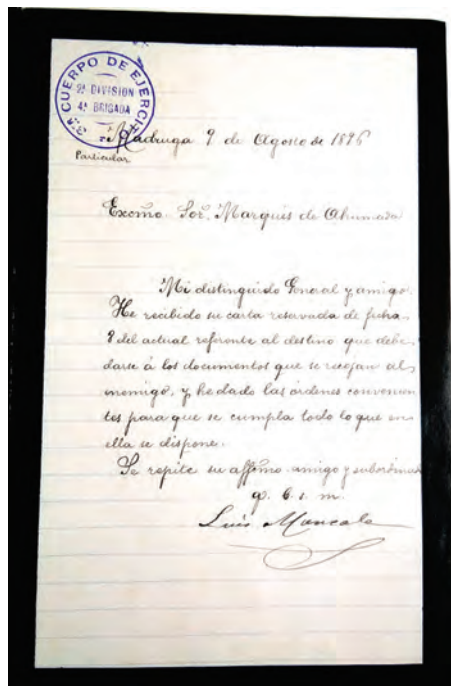 CUERPO DE EJERCITO
2ª DIVISION
4ª BRIGADA
Madruga 9 de Agosto de 1896
Particular
Excmo. Sor. Marqués de Ahumada
Mi distinguido General y amigo:
He recibido su carta reservada de fecha
8 del actual referente al destino que debe
darse á los documentos que se recojan al
enemigo, y he dado las órdenes convenien
tes para que se cumpla todo lo que en
ella se dispone.
Se repite su affmo. amigo y subordinado
q. b. s. m.
Luis